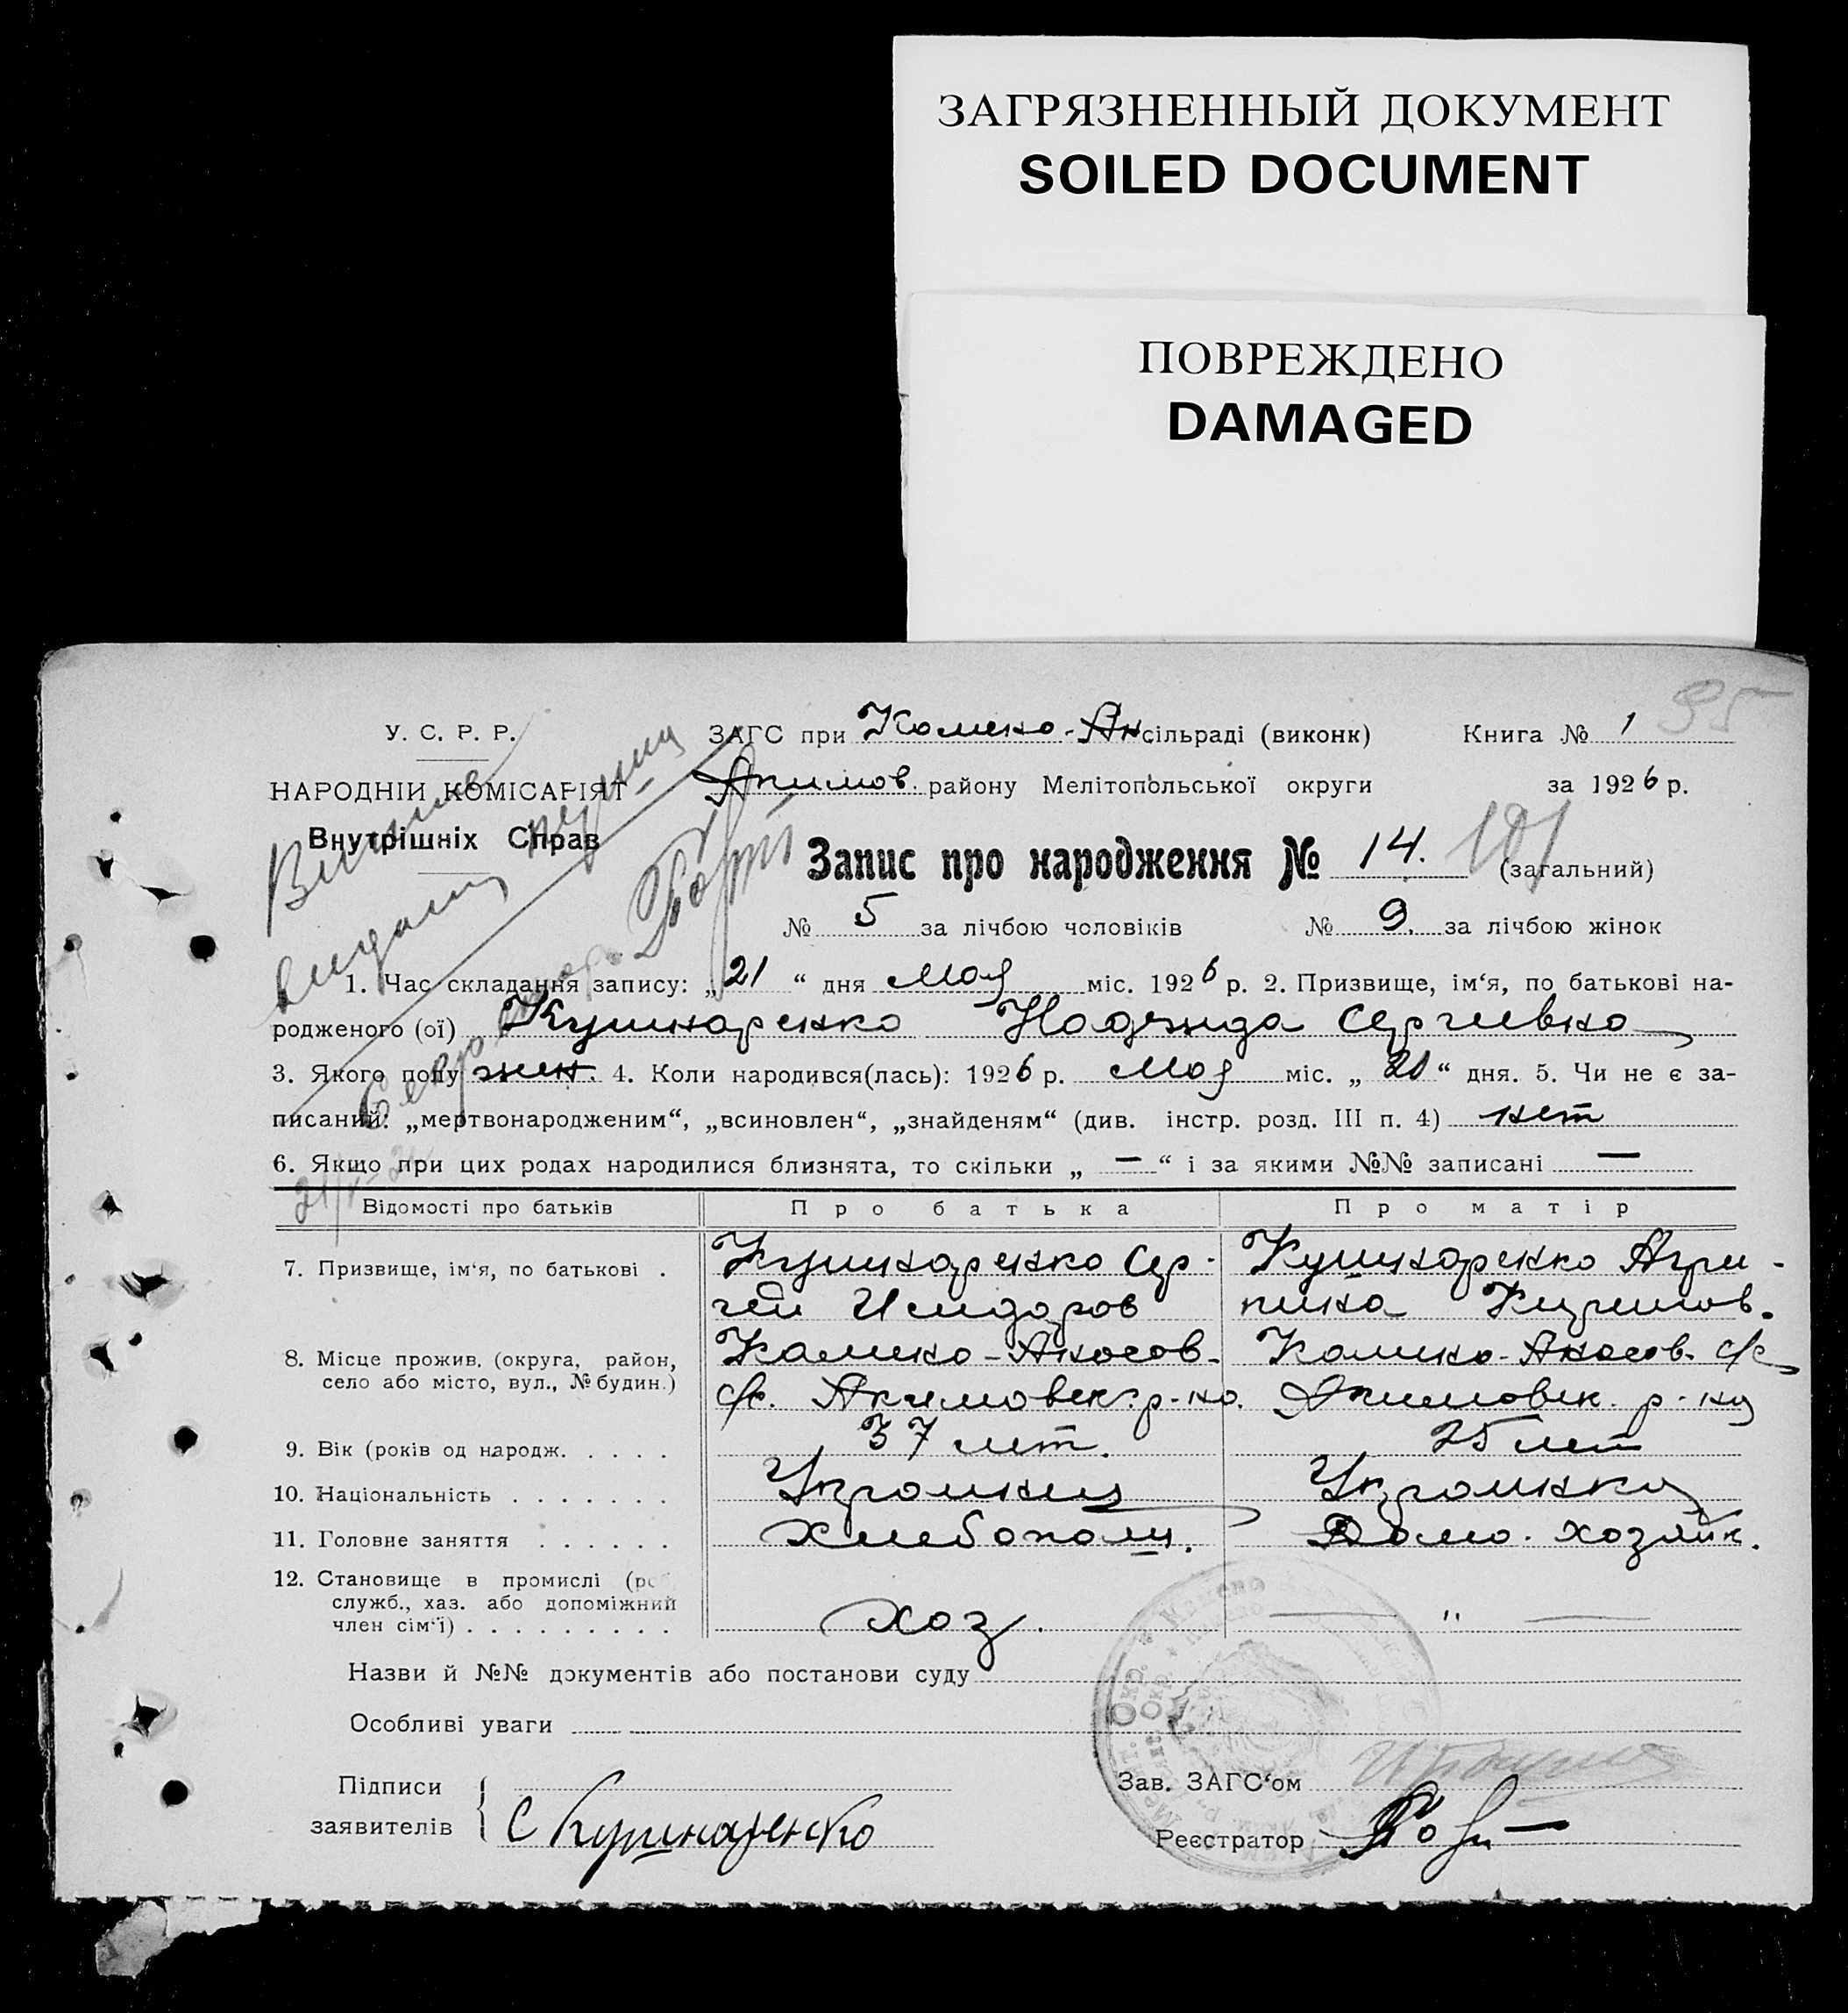 ЗАГРЯЗНЕННЫЙ ДОКУМЕНТ
SOILED DOCUMENT
ПОВРЕЖДЕНО
DAMAGED
95
У. С. Р. Р.
НАРОДНІЙ КОМІСАРІЯТ
Внутрішніх Справ
ЗАГС при Комико-Ак сільраді (виконк) Книга № 1
Акимов. району Мелітопольської округи за 1926 р.
Запис про народження № 14. 101 (загальний)
№ 5 за лічбою чоловіків № 9. за лічбою жінок
1. Час складання запису: „21“ дня мая міс. 1926 р. 2. Призвище, ім‘я, по батькові на-
родженого (ої) Кушнаренко Надежда Сергиевна
3. Якого полу жен. 4. Коли народився(лась): 1926 р. мая міс. „20“ дня. 5. Чи не є за-
писаний: „мертвонародженим“, „всиновлен“, „знайденям“ (див. інстр. розд. III п. 4) нет
6. Якщо при цих родах народилися близнята, то скільки „—“ і за якими №№ записані —
Відомості про батьків Про батька Про матір
7. Призвище, ім‘я, по батькові . Кушнаренко Сер- Кушнаренко Агри-
гей Исидоров пина
8. Місце прожив. (округа, район, село або місто, вул., № будин.)
с/с. Акимовск. р-на. Акимовск. р-на
9. Вік (років од народж. . . . . 37 лет. 25 лет
10. Національність . . . . . . . Украинец Украинка
11. Головне заняття . . . . . . Хлебопаш. Домо. хозяйк.
12. Становище в промислі (роб
служб., хаз. або допоміжний
член сім‘ї) . . . . . . . . . хоз. — " —
Назви й №№ документів або постанови суду
Особливі уваги
Підписи
заявителів С Кушнаренко
Зав. ЗАГС‘ом
Реєстратор